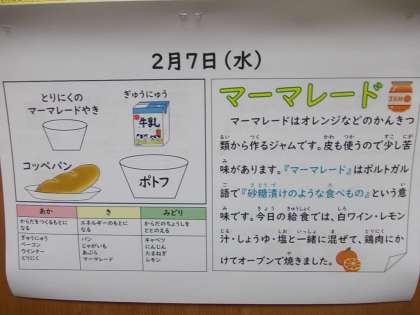 2月7日(水)
とりにくの
マーマレードやき
ぎゅうにゅう
牛乳
コッペパン
ポトフ
あか
き
みどり
からだをつくるもとに
なる
エネルギーのもとに
なる
からだのちょうしを
ととのえる
ぎゅうにゅう
ベーコン
ウインナー
とりにく
パン
じゃがいも
あぶら
マーマレード
キャベツ
にんじん
たまねぎ
レモン
マーマレード
マーマレードはオレンジなどのかんきつ
類から作るジャムです。皮も使うので少し苦
味があります。『マーマレード』はポルトガル
語で『砂糖漬けのような食べもの』という意
味です。今日の給食では、白ワイン・レモン
汁・しょうゆ・塩と一緒に混ぜて、鶏肉にか
けてオーブンで焼きました。